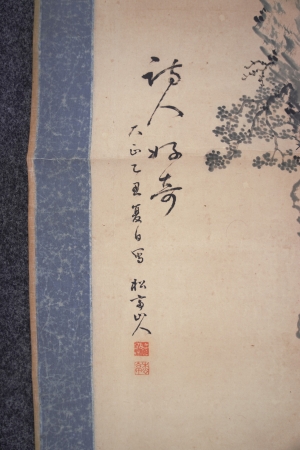 詩人好奇
大正乙丑夏日写 松斎山人